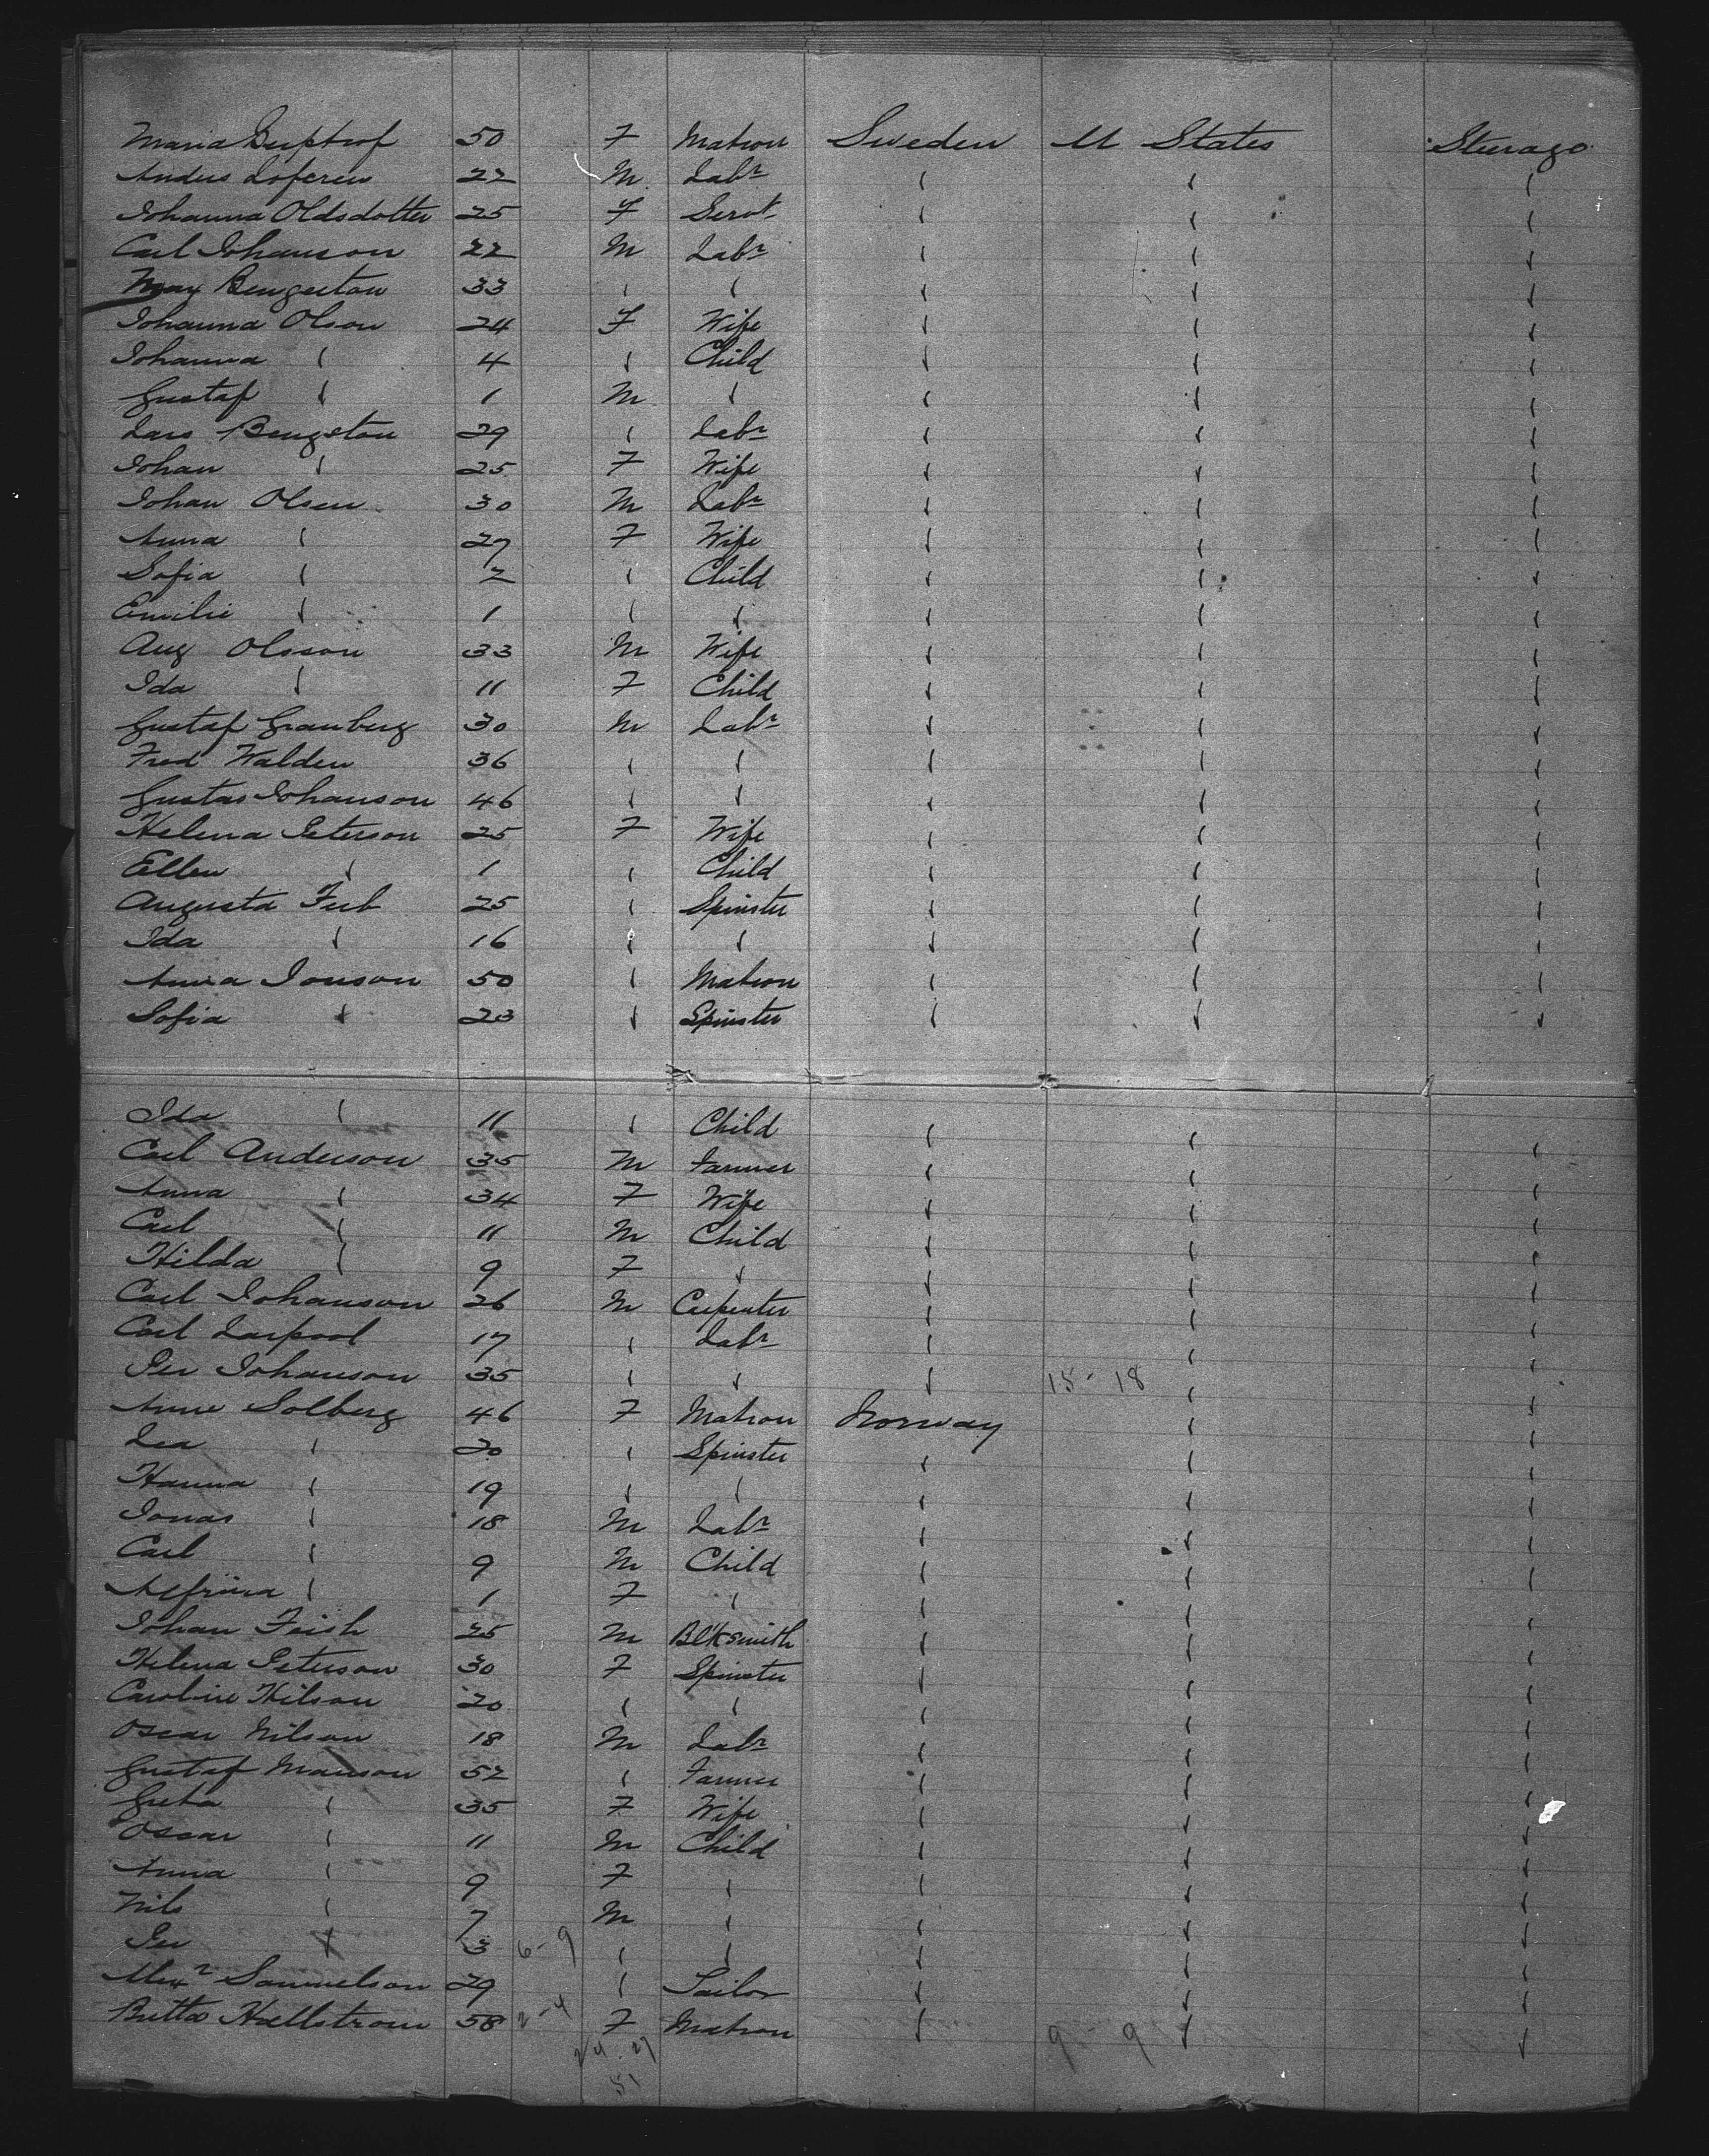 Maria 50 F Matron Sweden U States Steerage
Andus Loferen 22 M Labr
Johanna Oldsdotter 25 F Servt
Carl Johanson 22 M Labr
May Bengeston 33
Johanna Olson 24 F Wife
Johanna 4 Child
Gustaf 1 M
Lars Bengston 29 Labr
Johan 25 F Wife
Johan Olsen 30 M Labr
Anna 27 F Wife
Sofia 2 Child
Emilie 1
Aug Olsson 33 M Wife
Ida 11 F Child
Gustaf Granberg 30 M Labr
Fred Walden 36
Gustas Johanson 46
Helena Peterson 25 F Wife
Ellen 1 Child
Augusta 25 Spinster
Ida 16
Anna Jonson 50 Matron
Sofia 23 Spinster
Ida 11 Child
Carl Anderson 35 M Farmer
Anna 34 F Wife
Carl 11 M Child
Hilda 9 F
Carl Johanson 26 M Carpenter
Carl Larpool 17 Labr
Per Johanson 35 15-18
Anne Solberg 46 F Matron Norway
Lea 20 Spinster
Hanna 19
Jonas 18 M Labr
Carl 9 M Child
Alfrina 1 F
Johan Feish 25 M Blksmith
Helena Peterson 30 F Spinster
Caroline Hilson 20
Oscar Nilson 18 M Labr
Gustaf Manson 52 Farmer
Greta 35 F Wife
Oscar 11 M Child
Anna 9 F
Nils 7 M
Per 3 6-9
Alexr Samuelson 29 Sailor
Britta Hellstrom 58 2-4 F Matron 9-9
24.27
51